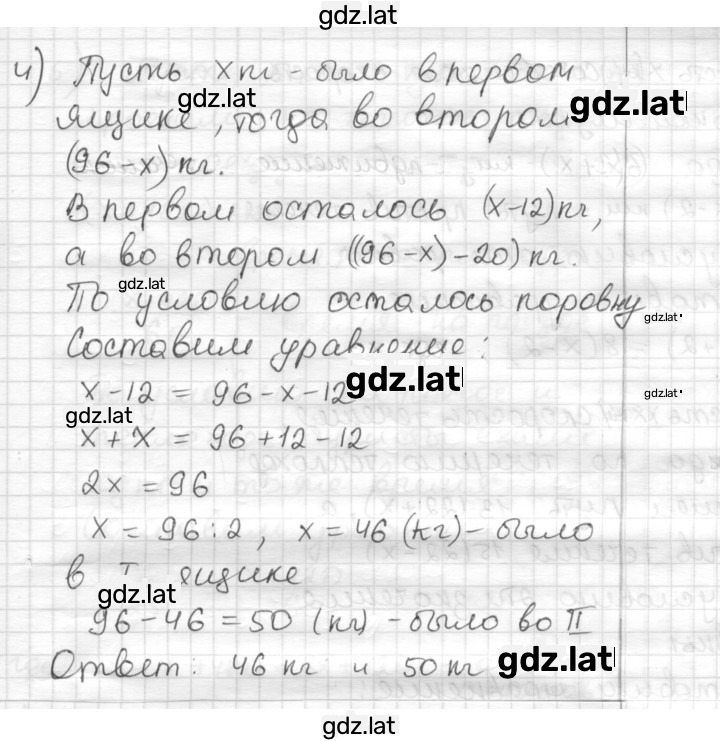 gdz.lat
4) Пусть x кг - было в первом
gdz.lat
gdz.lat
ящике, тогда во втором
(96-x) кг.
В первом осталось (x-12) кг,
а во втором ((96-x)-20) кг.
gdz.lat
По условию осталось поровну
gdz.lat
Составим уравнение:
x-12 = 96-x-12
gdz.lat
gdz.lat
gdz.lat
x+x = 96+12-12
2x = 96
x = 96:2, x = 46 (кг) - было
в I ящике
gdz.lat
96-46 = 50 (кг) - было во II
Ответ: 46 кг и 50 кг
gdz.lat
gdz.lat